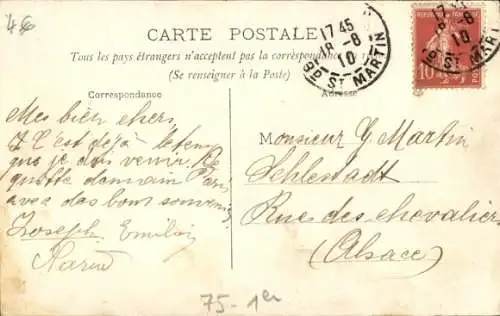 4€
CARTE POSTALE
Tous les pays étrangers n'acceptent pas la correspondance
(Se renseigner à la Poste)
Correspondance
Adresse
17 45
18 - 8
10
Bd ST MARTIN
10
Mes bien chers,
c'est déjà le
que je dois venir. Je
quitte demain Paris
avec des bons souvenirs
Joseph Emilie
Monsieur G. Martin
Schlestadt
Rue des chevaliers
(Alsace)
75 - 1er